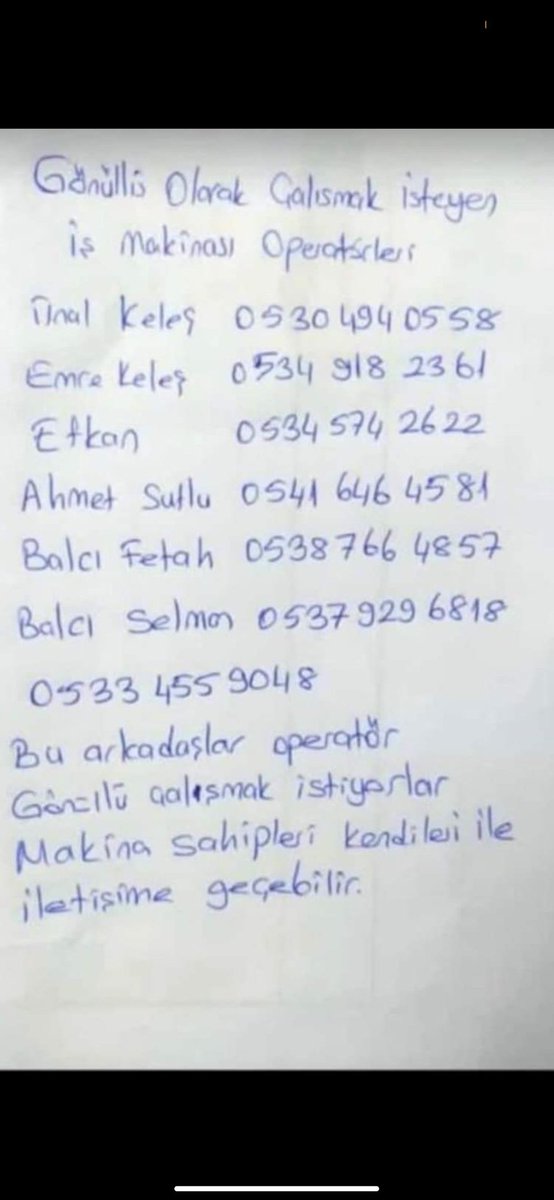 Gönüllü Olarak Çalısmak isteyen
iş Makinası Operatörleri
Ünal Keleş 0530 494 0558
Emre Keleş 0534 918 2361
Efkan 0534 574 2622
Ahmet Sutlu 0541 646 4581
Balcı Fetah 0538 766 4857
Balcı Selman 0537 929 6818
0533 455 9048
Bu arkadaşlar operatör
Gönüllü çalışmak istiyorlar
Makina sahipleri kendileri ile
iletişime geçebilir.